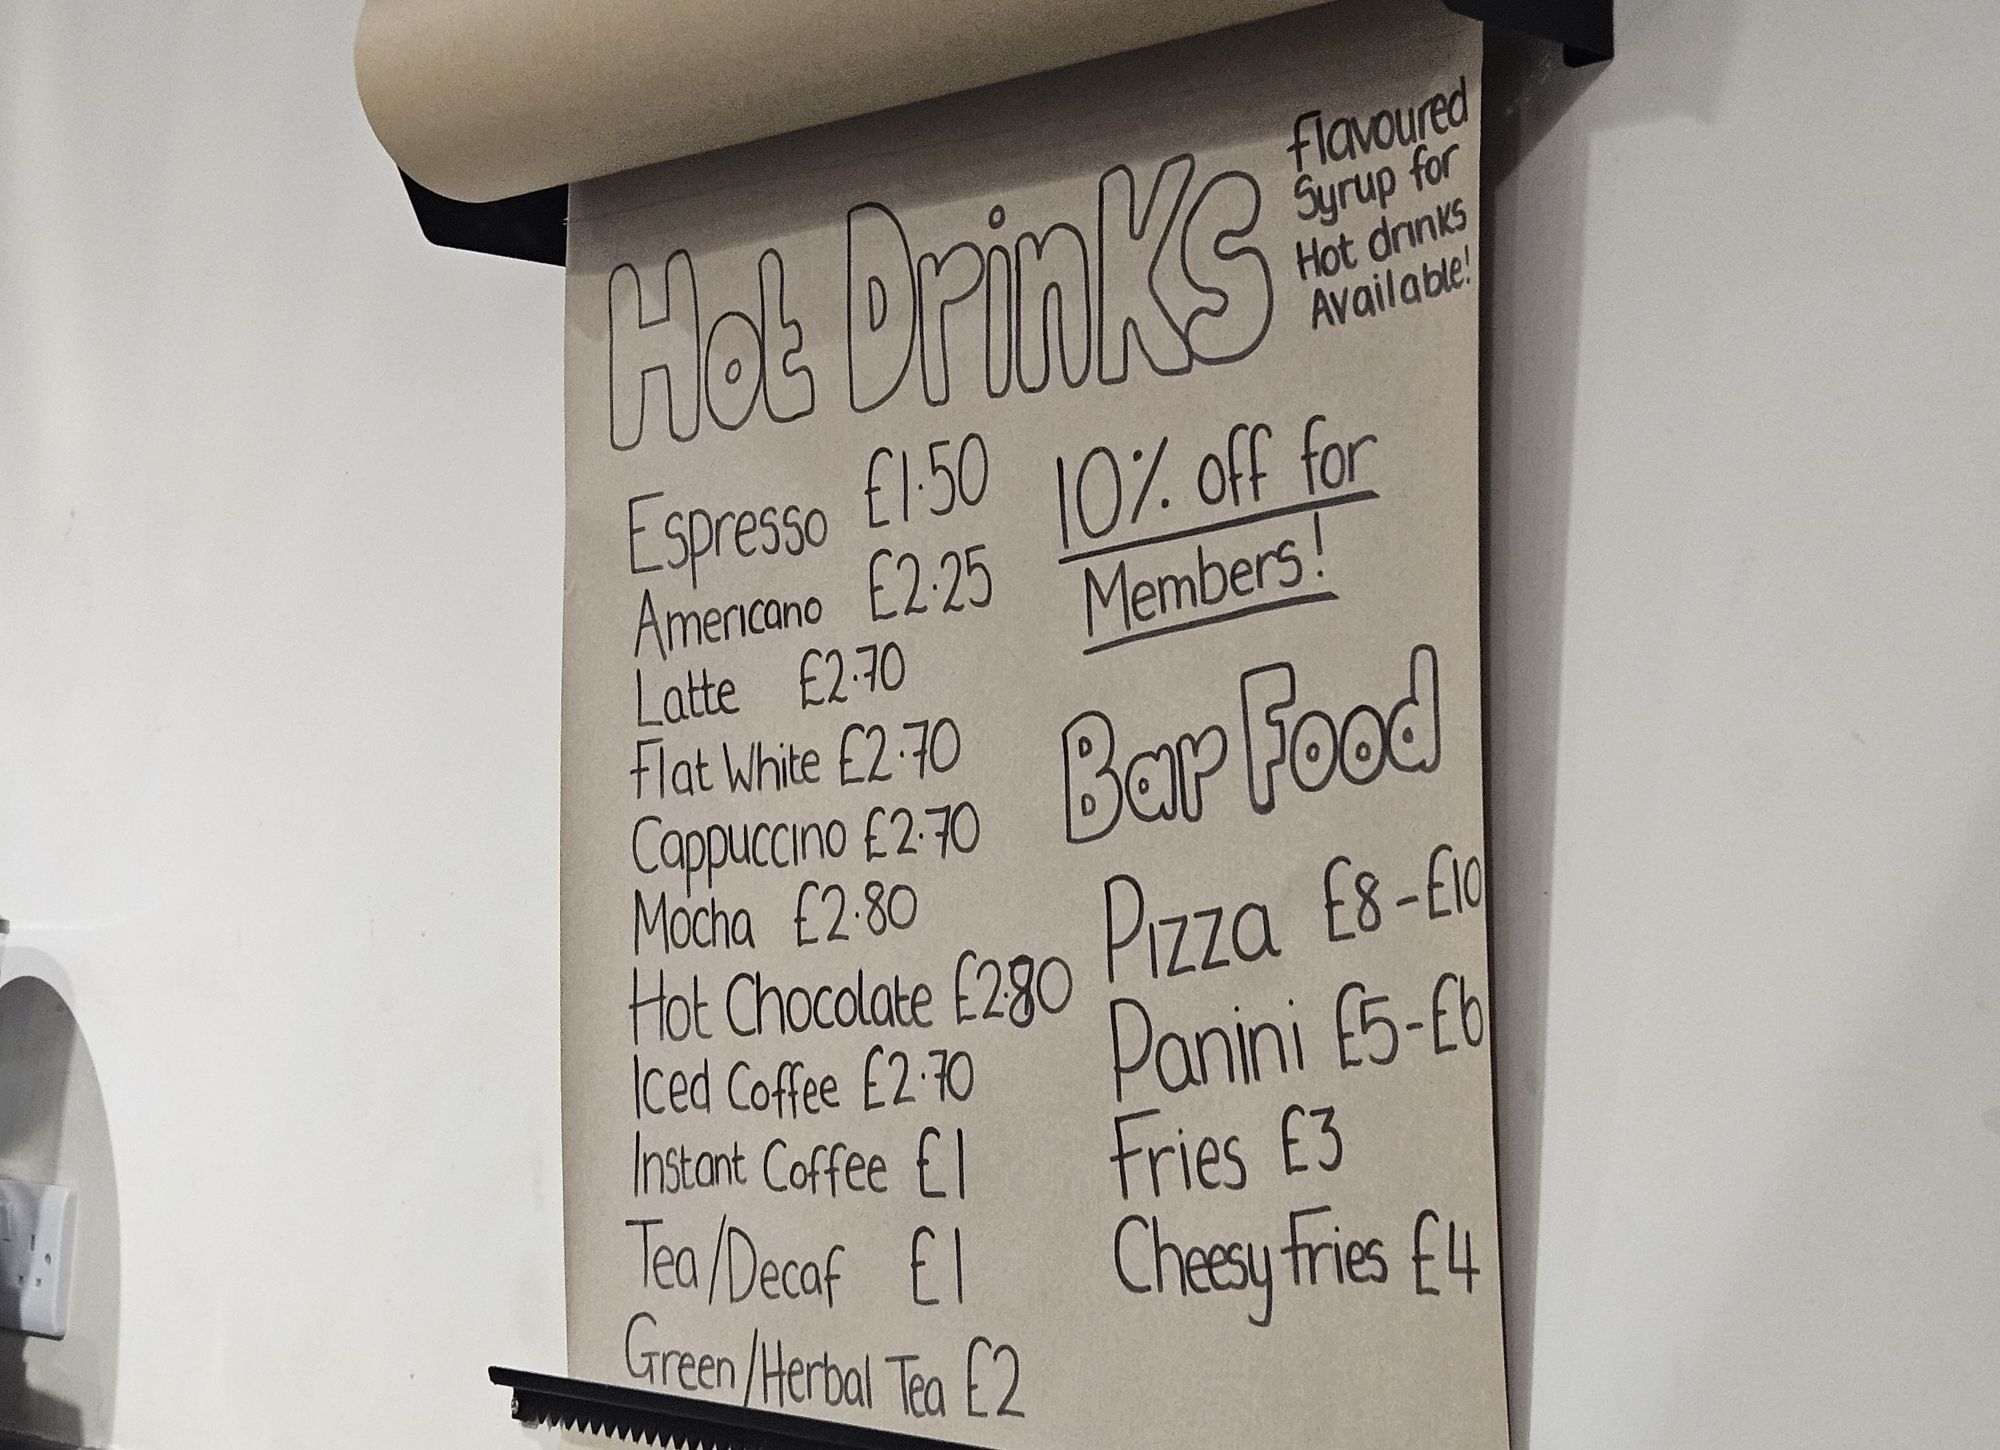 Flavoured
Syrup for
Hot drinks
Available!
Hot Drinks
Espresso £1.50
Americano £2.25
Latte £2.70
Flat White £2.70
Cappuccino £2.70
Mocha £2.80
Hot Chocolate £2.80
Iced Coffee £2.70
Instant Coffee £1
Tea/Decaf £1
Green/Herbal Tea £2
10% off for
Members!
Bar Food
Pizza £8-£10
Panini £5-£6
Fries £3
Cheesy Fries £4